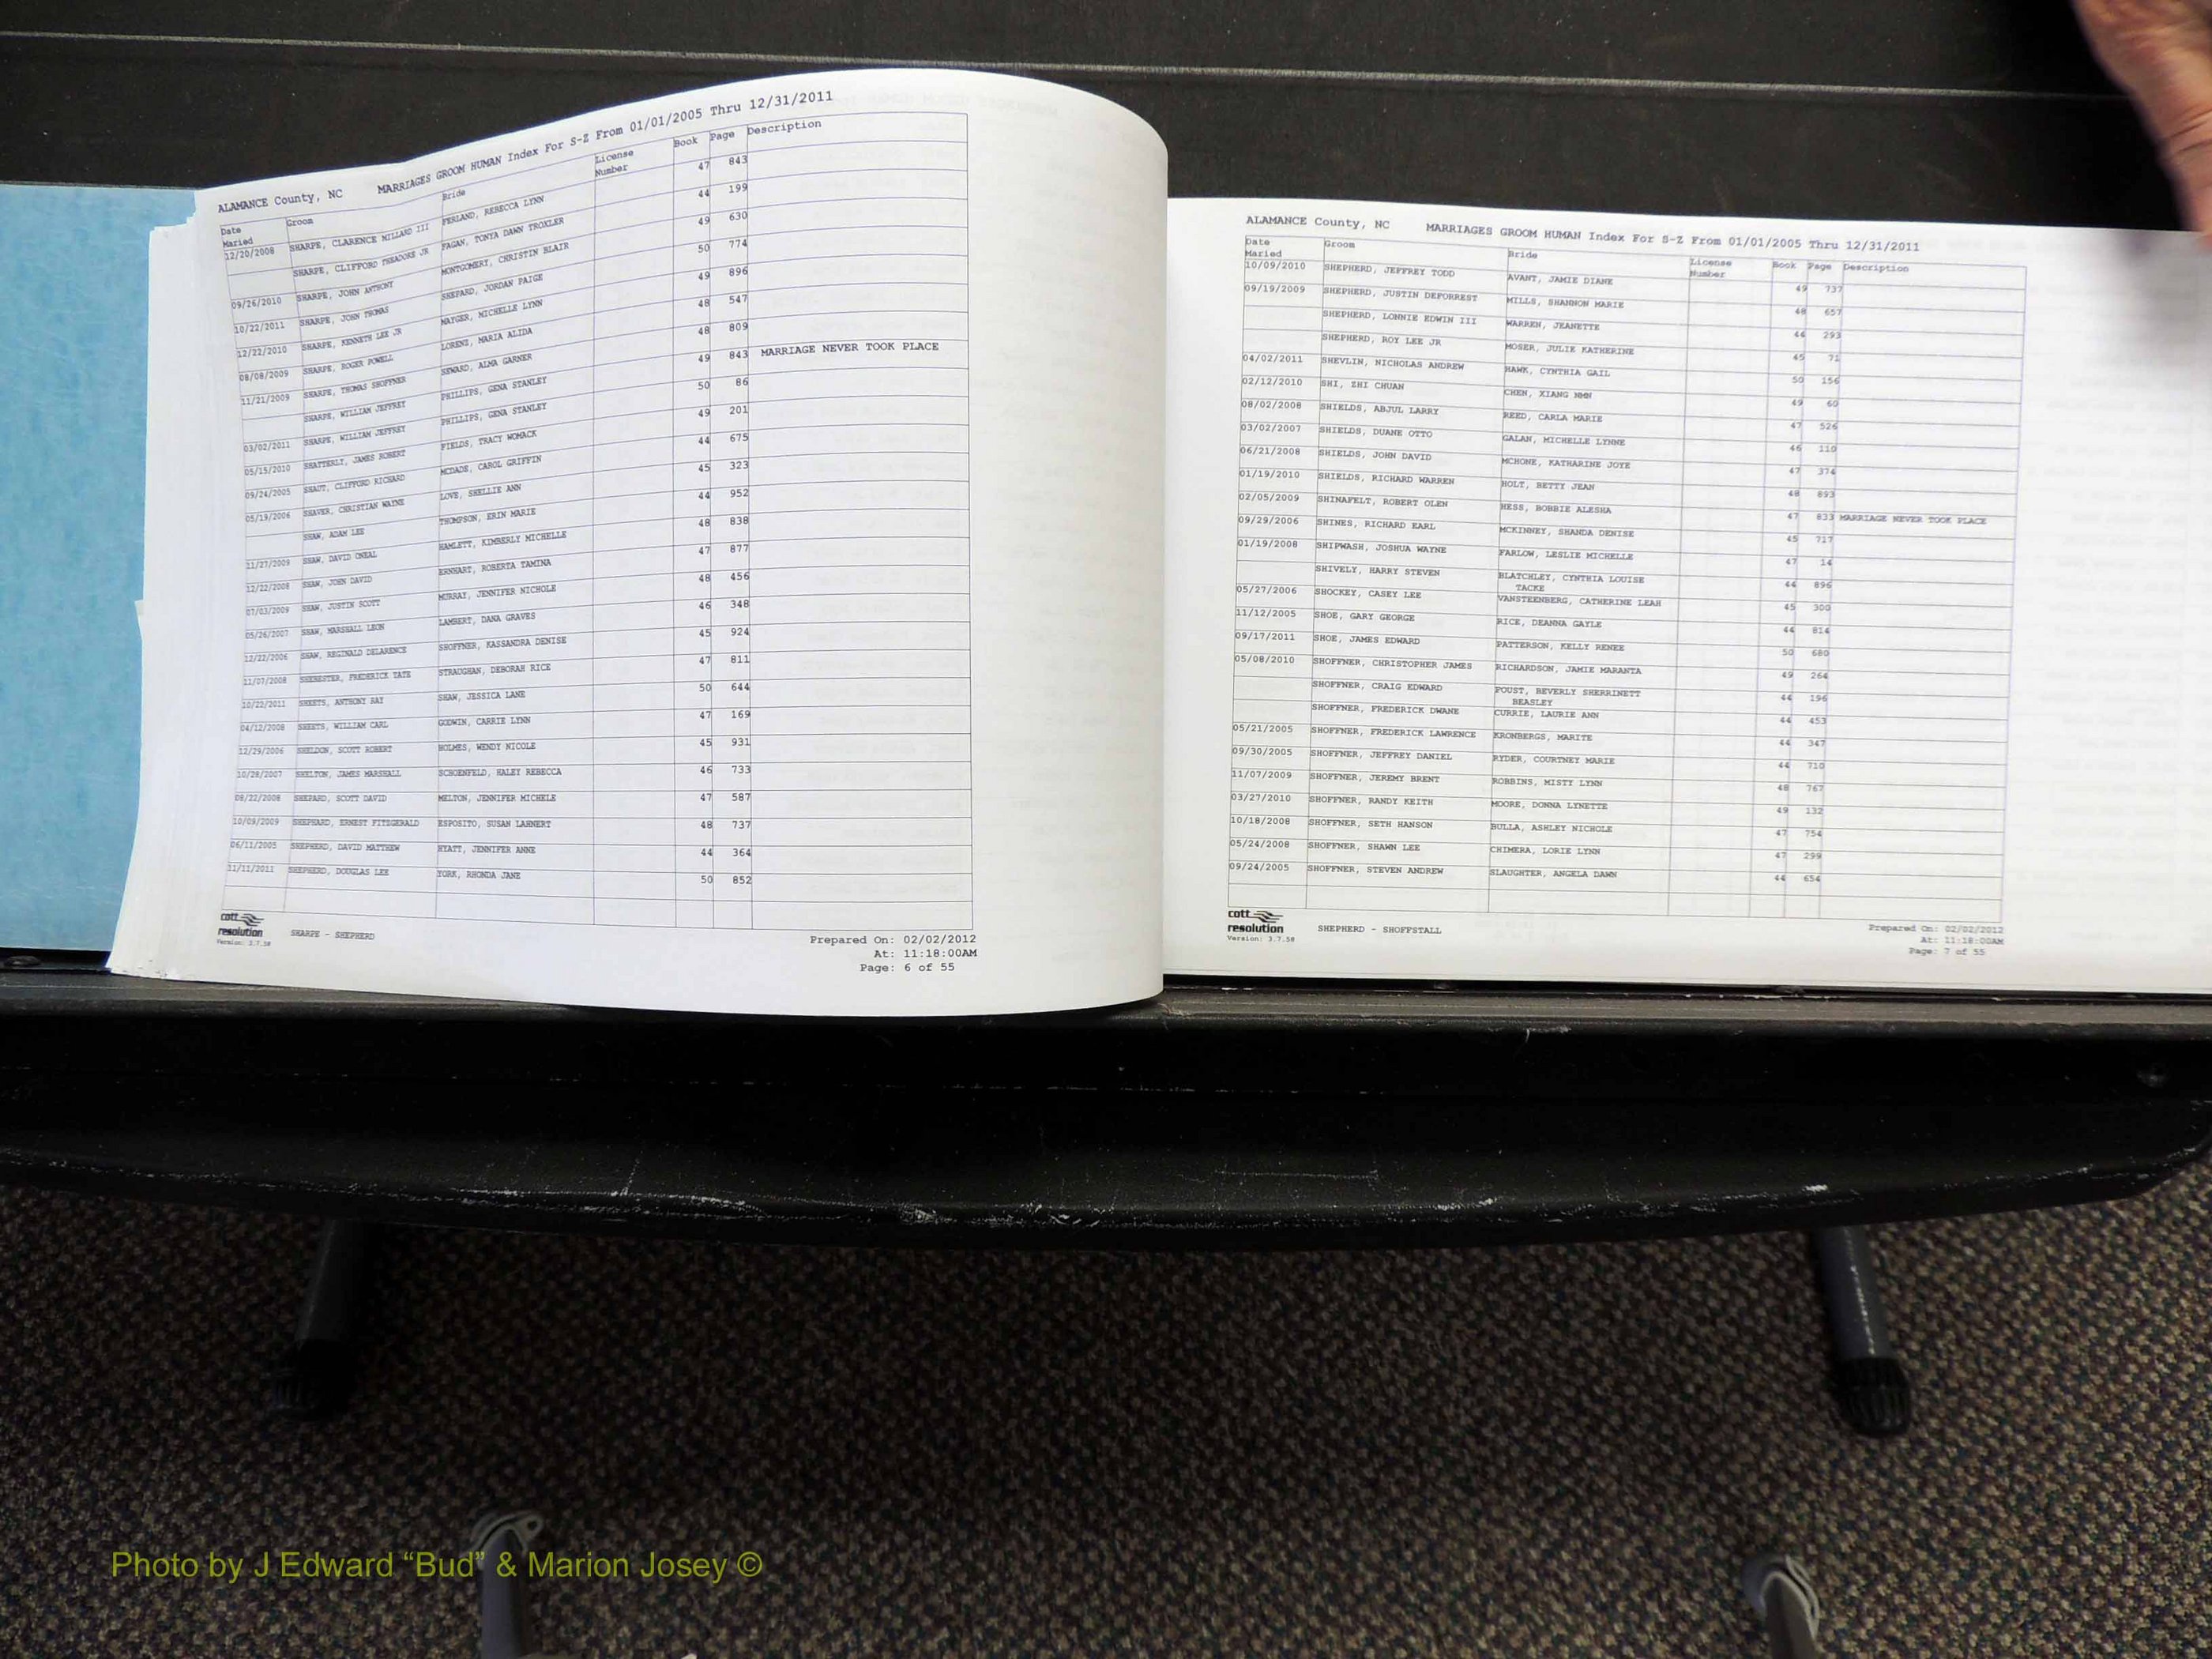 ALAMANCE County, NC MARRIAGES GROOM HUMAN Index For S-Z From 01/01/2005 Thru 12/31/2011
Date Maried Groom Bride License Number Book Page Description
12/20/2008 SHARPE, CLARENCE MILLARD III FERLAND, REBECCA LYNN 47 843
SHARPE, CLIFFORD THEADORE JR FAGAN, TONYA DAWN TROXLER 44 199
09/26/2010 SHARPE, JOHN ANTHONY MONTGOMERY, CHRISTIN BLAIR 49 630
10/22/2011 SHARPE, JOHN THOMAS SHEPARD, JORDAN PAIGE 50 774
12/22/2010 SHARPE, KENNETH LEE JR MAYGER, MICHELLE LYNN 49 896
08/08/2009 SHARPE, ROGER POWELL LORENZ, MARIA ALIDA 48 547
11/21/2009 SHARPE, THOMAS SHOFFNER SEWARD, ALMA GARNER 48 809
SHARPE, WILLIAM JEFFREY PHILLIPS, GENA STANLEY 49 843 MARRIAGE NEVER TOOK PLACE
03/02/2011 SHARPE, WILLIAM JEFFREY PHILLIPS, GENA STANLEY 50 86
05/15/2010 SHATTERLY, JAMES ROBERT FIELDS, TRACY WOMACK 49 201
09/24/2005 SHAUT, CLIFFORD RICHARD MCDADE, CAROL GRIFFIN 44 675
05/19/2006 SHAVER, CHRISTIAN WAYNE LOVE, SHELLIE ANN 45 323
SHAW, ADAM LEE THOMPSON, ERIN MARIE 44 952
11/27/2009 SHAW, DAVID ONEAL HAMLETT, KIMBERLY MICHELLE 48 838
12/22/2008 SHAW, JOHN DAVID ERNHART, ROBERTA TAMINA 47 877
07/03/2009 SHAW, JUSTIN SCOTT MURRAY, JENNIFER NICHOLE 48 456
05/26/2007 SHAW, MARSHALL LEON LAMBERT, DANA GRAVES 46 348
12/22/2006 SHAW, REGINALD DELARENCE SHOFFNER, KASSANDRA DENISE 45 924
11/07/2008 SHEBESTER, FREDERICK TATE STRAUGHAN, DEBORAH RICE 47 811
10/22/2011 SHEETS, ANTHONY RAY SHAW, JESSICA LANE 50 644
04/12/2008 SHEETS, WILLIAM CARL GODWIN, CARRIE LYNN 47 169
12/29/2006 SHELDON, SCOTT ROBERT HOLMES, WENDY NICOLE 45 931
10/28/2007 SHELTON, JAMES MARSHALL SCHOENFELD, HALEY REBECCA 46 733
08/22/2008 SHEPARD, SCOTT DAVID MELTON, JENNIFER MICHELE 47 587
10/09/2009 SHEPHARD, ERNEST FITZGERALD ESPOSITO, SUSAN LAHNERT 48 737
06/11/2005 SHEPHERD, DAVID MATTHEW HYATT, JENNIFER ANNE 44 364
11/11/2011 SHEPHERD, DOUGLAS LEE YORK, RHONDA JANE 50 852
cott
resolution
Version: 3.7.58
SHARPE - SHEPHERD
Prepared On: 02/02/2012
At: 11:18:00AM
Page: 6 of 55
ALAMANCE County, NC MARRIAGES GROOM HUMAN Index For S-Z From 01/01/2005 Thru 12/31/2011
Date Maried Groom Bride License Number Book Page Description
10/09/2010 SHEPHERD, JEFFREY TODD AVANT, JAMIE DIANE 49 737
09/19/2009 SHEPHERD, JUSTIN DEFORREST MILLS, SHANNON MARIE 48 657
SHEPHERD, LONNIE EDWIN III WARREN, JEANETTE 44 293
SHEPHERD, ROY LEE JR MOSER, JULIE KATHERINE 45 71
04/02/2011 SHEVLIN, NICHOLAS ANDREW HAWK, CYNTHIA GAIL 50 156
02/12/2010 SHI, ZHI CHUAN CHEN, XIANG NMN 49 60
08/02/2008 SHIELDS, ABJUL LARRY REED, CARLA MARIE 47 526
03/02/2007 SHIELDS, DUANE OTTO GALAN, MICHELLE LYNNE 46 110
06/21/2008 SHIELDS, JOHN DAVID MCHONE, KATHARINE JOYE 47 374
01/19/2010 SHIELDS, RICHARD WARREN HOLT, BETTY JEAN 48 893
02/05/2009 SHINAFELT, ROBERT OLEN HESS, BOBBIE ALESHA 47 833 MARRIAGE NEVER TOOK PLACE
09/29/2006 SHINES, RICHARD EARL MCKINNEY, SHANDA DENISE 45 717
01/19/2008 SHIPWASH, JOSHUA WAYNE FARLOW, LESLIE MICHELLE 47 14
SHIVELY, HARRY STEVEN BLATCHLEY, CYNTHIA LOUISE TACKE 44 896
05/27/2006 SHOCKEY, CASEY LEE VANSTEENBERG, CATHERINE LEAH 45 300
11/12/2005 SHOE, GARY GEORGE RICE, DEANNA GAYLE 44 814
09/17/2011 SHOE, JAMES EDWARD PATTERSON, KELLY RENEE 50 680
05/08/2010 SHOFFNER, CHRISTOPHER JAMES RICHARDSON, JAMIE MARANTA 49 264
SHOFFNER, CRAIG EDWARD FOUST, BEVERLY SHERRINETT BEASLEY 44 196
SHOFFNER, FREDERICK DWANE CURRIE, LAURIE ANN 44 453
05/21/2005 SHOFFNER, FREDERICK LAWRENCE KRONBERGS, MARITE 44 347
09/30/2005 SHOFFNER, JEFFREY DANIEL RYDER, COURTNEY MARIE 44 710
11/07/2009 SHOFFNER, JEREMY BRENT ROBBINS, MISTY LYNN 48 767
03/27/2010 SHOFFNER, RANDY KEITH MOORE, DONNA LYNETTE 49 132
10/18/2008 SHOFFNER, SETH HANSON BULLA, ASHLEY NICHOLE 47 754
05/24/2008 SHOFFNER, SHAWN LEE CHIMERA, LORIE LYNN 47 299
09/24/2005 SHOFFNER, STEVEN ANDREW SLAUGHTER, ANGELA DAWN 44 654
cott
resolution
Version: 3.7.58
SHEPHERD - SHOFFSTALL
Prepared On: 02/02/2012
At: 11:18:00AM
Page: 7 of 55
Photo by J Edward “Bud” & Marion Josey ©